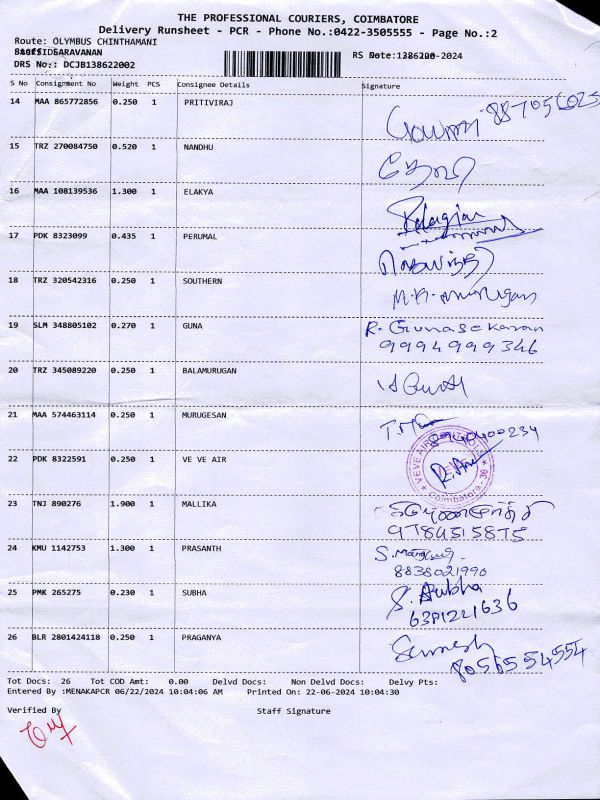 THE PROFESSIONAL COURIERS, COIMBATORE
Delivery Runsheet - PCR - Phone No.:0422-3505555 - Page No.:2
Route: OLYMBUS CHINTHAMANI
SARAVANAN
DRS No:: DCJB138622002
S No Consignment No Weight PCS Consignee Details Signature
14 MAA 865772856 0.250 1 PRITIVIRAJ
15 TRZ 270084750 0.520 1 NANDHU
16 MAA 108139536 1.300 1 ELAKYA
17 PDK 8323099 0.435 1 PERUMAL
18 TRZ 320542316 0.250 1 SOUTHERN
19 SLM 348805102 0.270 1 GUNA R. Gunasekaran
9994999346
20 TRZ 345089220 0.250 1 BALAMURUGAN
21 MAA 574463114 0.250 1 MURUGESAN
22 PDK 8322591 0.250 1 VE VE AIR
Coimbatore - 36
23 TNJ 890276 1.900 1 MALLIKA
9784515875
24 KMU 1142753 1.300 1 PRASANTH
8838021990
25 PMK 265275 0.230 1 SUBHA S. Aubha
6381221636
26 BLR 2801424118 0.250 1 PRAGANYA
8056554554
Tot Docs: 26 Tot COD Amt: 0.00 Delvd Docs: Non Delvd Docs: Delvy Pts:
Entered By :MENAKAPCR 06/22/2024 10:04:06 AM Printed On: 22-06-2024 10:04:30
Verified By Staff Signature